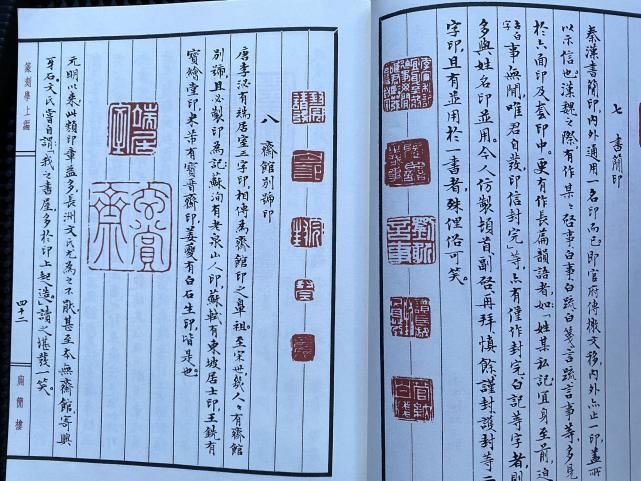 七 書簡印
秦漢書簡印,內外通用一名印而已,即官府傳檄文移,內外亦止一印,蓋所
以示信也。漢魏之際,有作某某啓事白事白疏白箋言疏言事等,多見
於六面印及套印中。更有作長篇韻語者,如「姓某私記宜身至前,迫
事毋閒,唯君自發,印信封完」等,亦有僅作封完白記等字者,則
多與姓名印並用。今人仿製頓首副啓再拜慎餘謹封護封等二
字印,且有並用於一書者,殊俚俗可笑。
八 齋館別號印
唐李泌有端居室三字印,相傳為齋館印之鼻祖,至宋世幾人人有齋館
別號,且必製印為記,蘇洵有老泉山人印,蘇軾有東坡居士印,王詵有
寶繪堂印,米芾有寶晉齋印,姜夔有白石生印,皆是也。
端居室
元明以來,此類印章益多,長洲文氏尤為之不厭,甚至本無齋館,寄興
牙石,文氏嘗自謂「我之書屋多於印上起造」讀之堪發一笑。
篆刻學上編
四十二